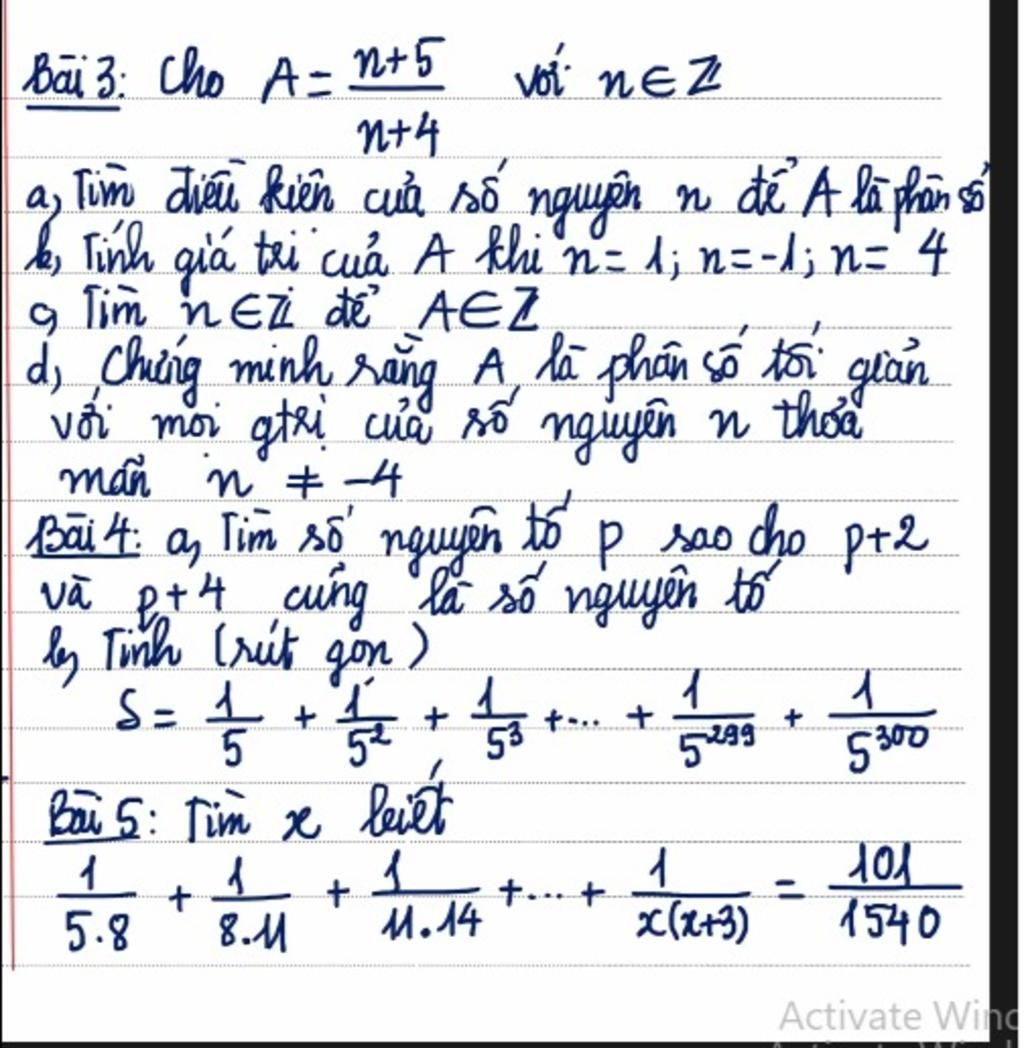 Bài 3: Cho A = \frac{n+5}{n+4} với n ∈ Z
a, Tìm điều kiện của số nguyên n để A là phân số
b, Tính giá trị của A khi n = 1; n = -1; n = 4
c, Tìm n ∈ Z để A ∈ Z
d, Chứng minh rằng A là phân số tối giản
với mọi gtrị của số nguyên n thỏa
mãn n ≠ -4
Bài 4: a, Tìm số nguyên tố p sao cho p+2
và p+4 cũng là số nguyên tố
b, Tính (rút gọn)
S = \frac{1}{5} + \frac{1}{5^2} + \frac{1}{5^3} + ... + \frac{1}{5^{299}} + \frac{1}{5^{300}}
Bài 5: Tìm x biết
\frac{1}{5.8} + \frac{1}{8.11} + \frac{1}{11.14} + ... + \frac{1}{x(x+3)} = \frac{101}{1540}
Activate Wind